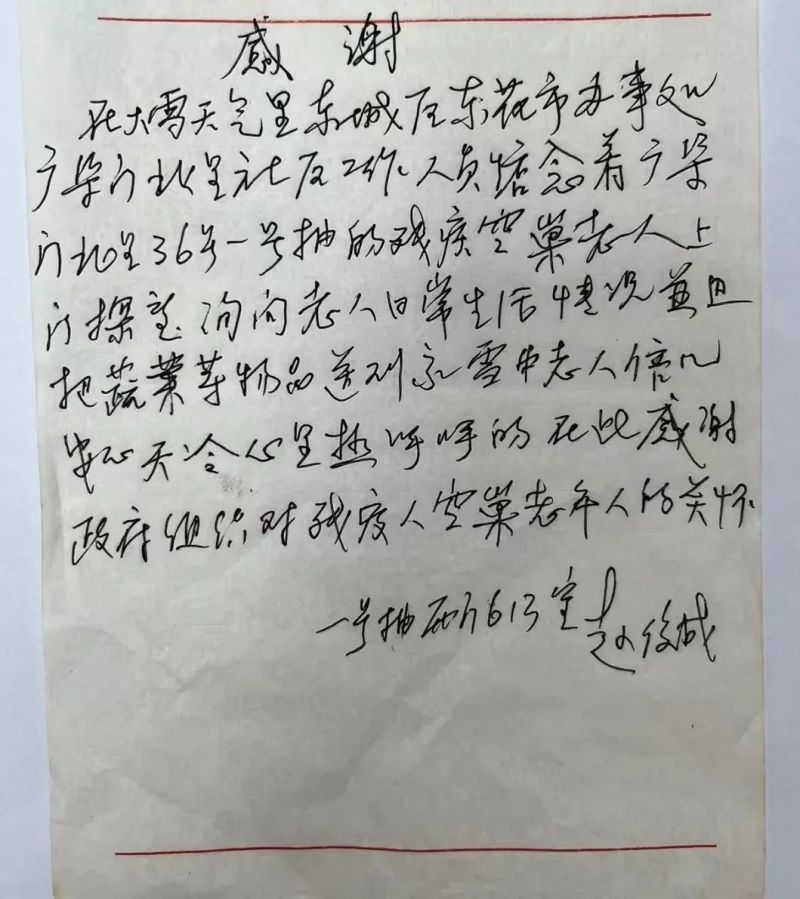 感 谢
在大雪天气里东城区东花市办事处
广渠门北里社区工作人员惦念着广渠
门北里36号一号抽的残疾空巢老人上
门探望询问老人日常生活情况並且
把蔬菜等物品送到家雪中老人倍儿
安心天冷心里热呼呼的在此感谢
政府组织对残疾人空巢老年人的关怀
一号抽 613室 赵俊城